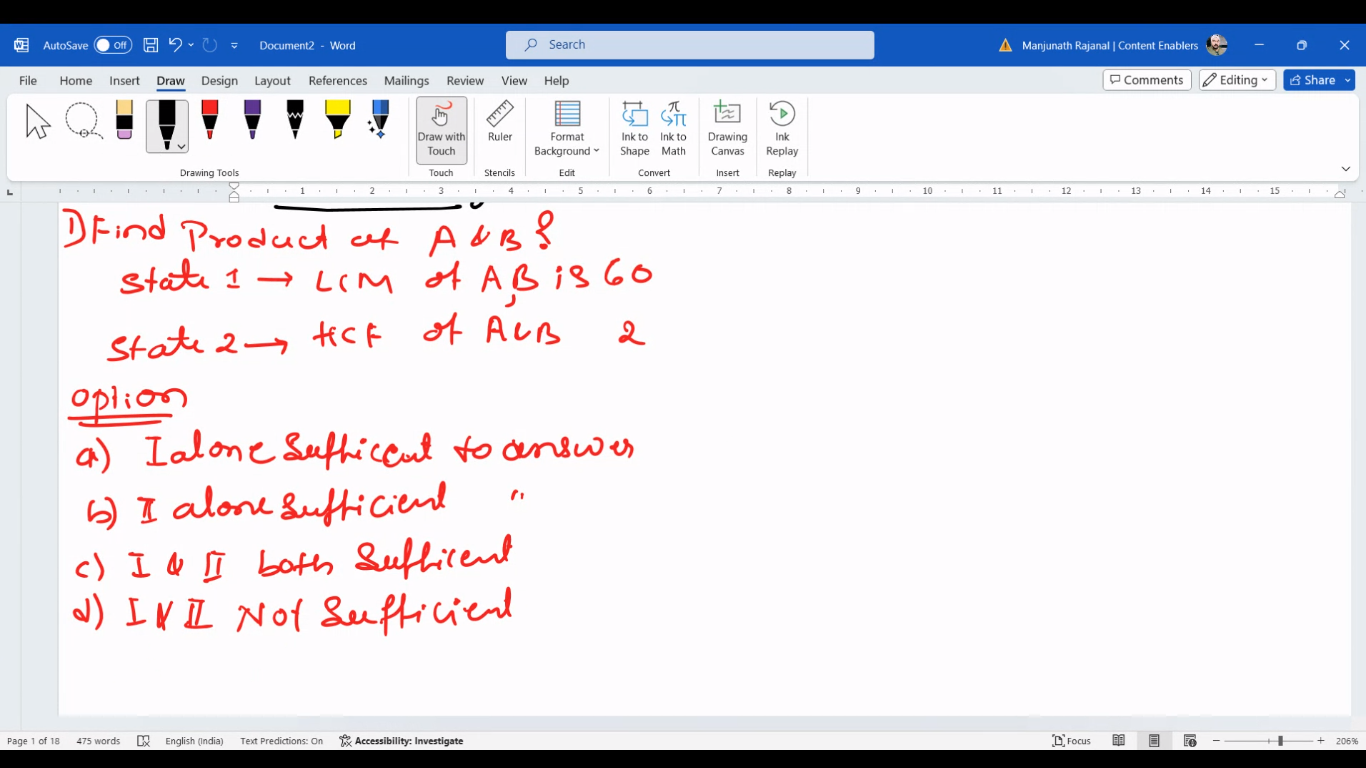 AutoSave Off Document2 - Word Search Manjunath Rajanal | Content Enablers
File Home Insert Draw Design Layout References Mailings Review View Help Comments Editing Share
Draw with Touch Ruler Format Background Ink to Shape Ink to Math Drawing Canvas Ink Replay
Drawing Tools Touch Stencils Edit Convert Insert Replay
1 2 3 4 5 6 7 8 9 10 11 12 13 14 15
1) Find Product of A & B ?
State 1 → LCM of A, B is 60
State 2 → HCF of A & B 2
Option
a) I alone Sufficent to answer
b) II alone Sufficient "
c) I & II both Sufficent
d) I & II Not Sufficient
Page 1 of 18 475 words English (India) Text Predictions: On Accessibility: Investigate Focus 206%